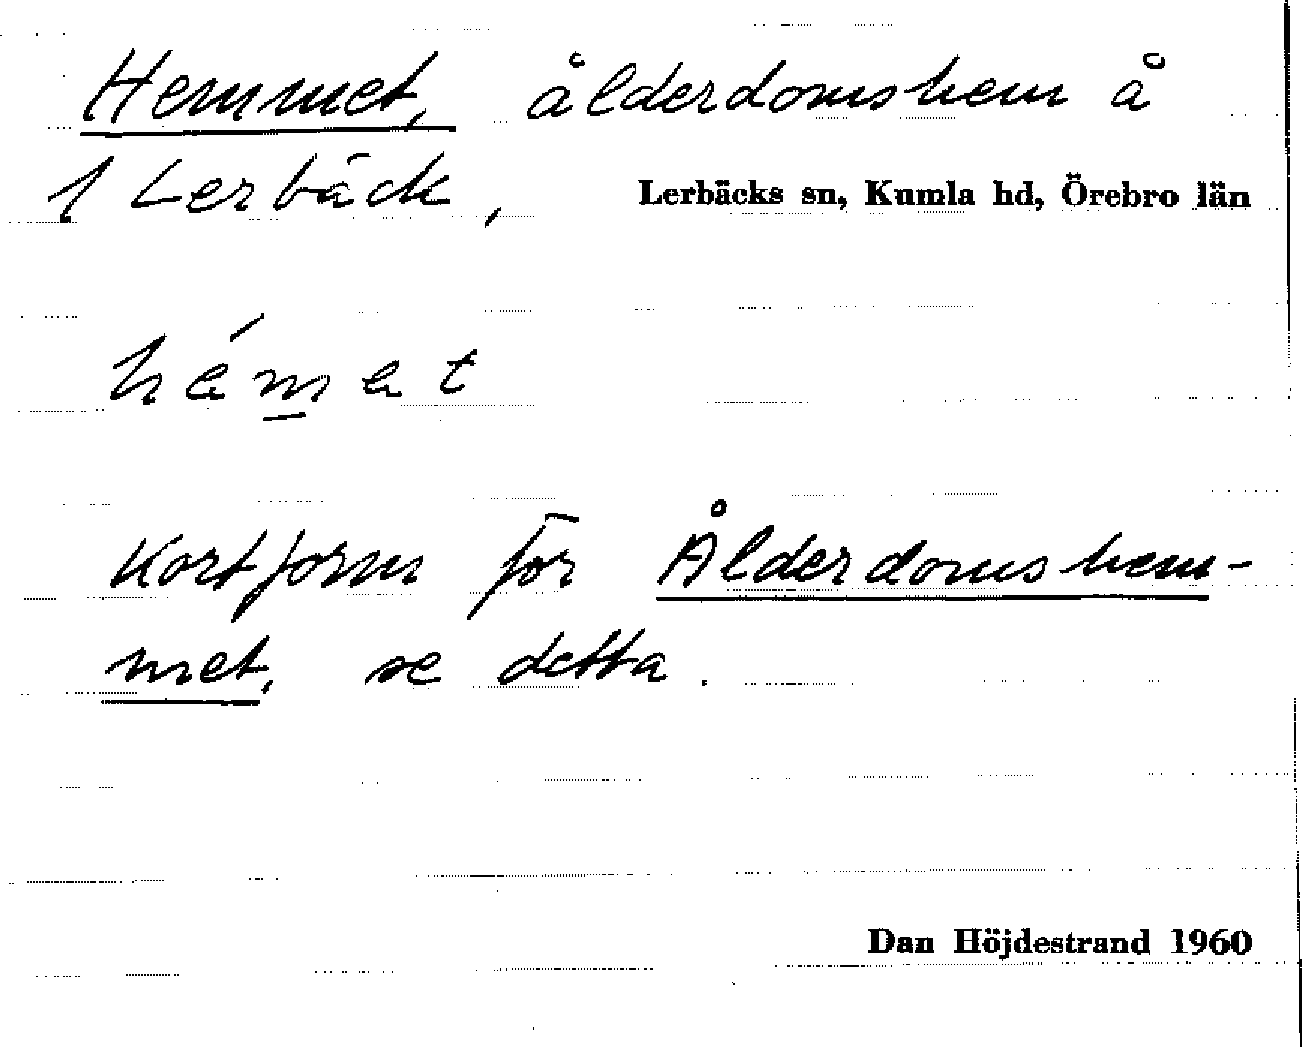 Hemmet, ålderdomshem å
1 Lerbäck, Lerbäcks sn, Kumla hd, Örebro län
hémet
Kortform för Ålderdomshem-
met, se detta.
Dan Höjdestrand 1960